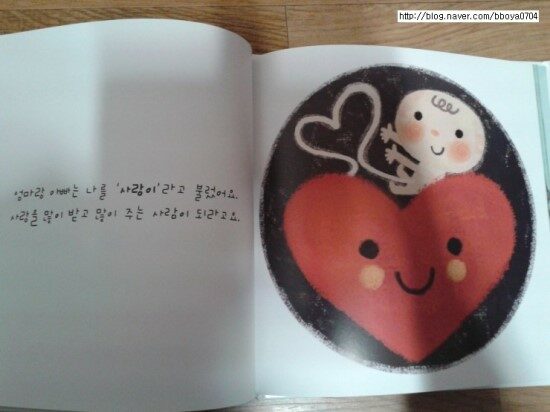 http://blog.naver.com/bboya0704
엄마랑 아빠는 나를 '사랑이'라고 불렀어요.
사랑을 많이 받고 많이 주는 사람이 되라고요.